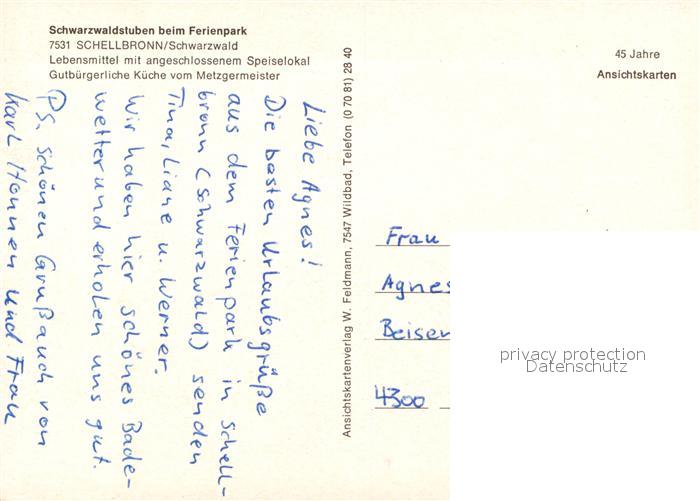 Schwarzwaldstuben beim Ferienpark
7531 SCHELLBRONN/Schwarzwald
Lebensmittel mit angeschlossenem Speiselokal
Gutbürgerliche Küche vom Metzgermeister
45 Jahre
Ansichtskarten
Liebe Agnes!
Die besten Urlaubsgrüße
aus dem Ferienpark in Schell-
bronn (Schwarzwald) senden
Tina, Liane u. Werner.
Wir haben hier schönes Bade-
wetter und erholen uns gut.
PS, schönen Gruß auch von
Karl Honnen und Frau
Ansichtskartenverlag W. Feldmann, 7547 Wildbad, Telefon (0 70 81) 28 40
Frau
Agnes
Beisen
4300
privacy protection
Datenschutz